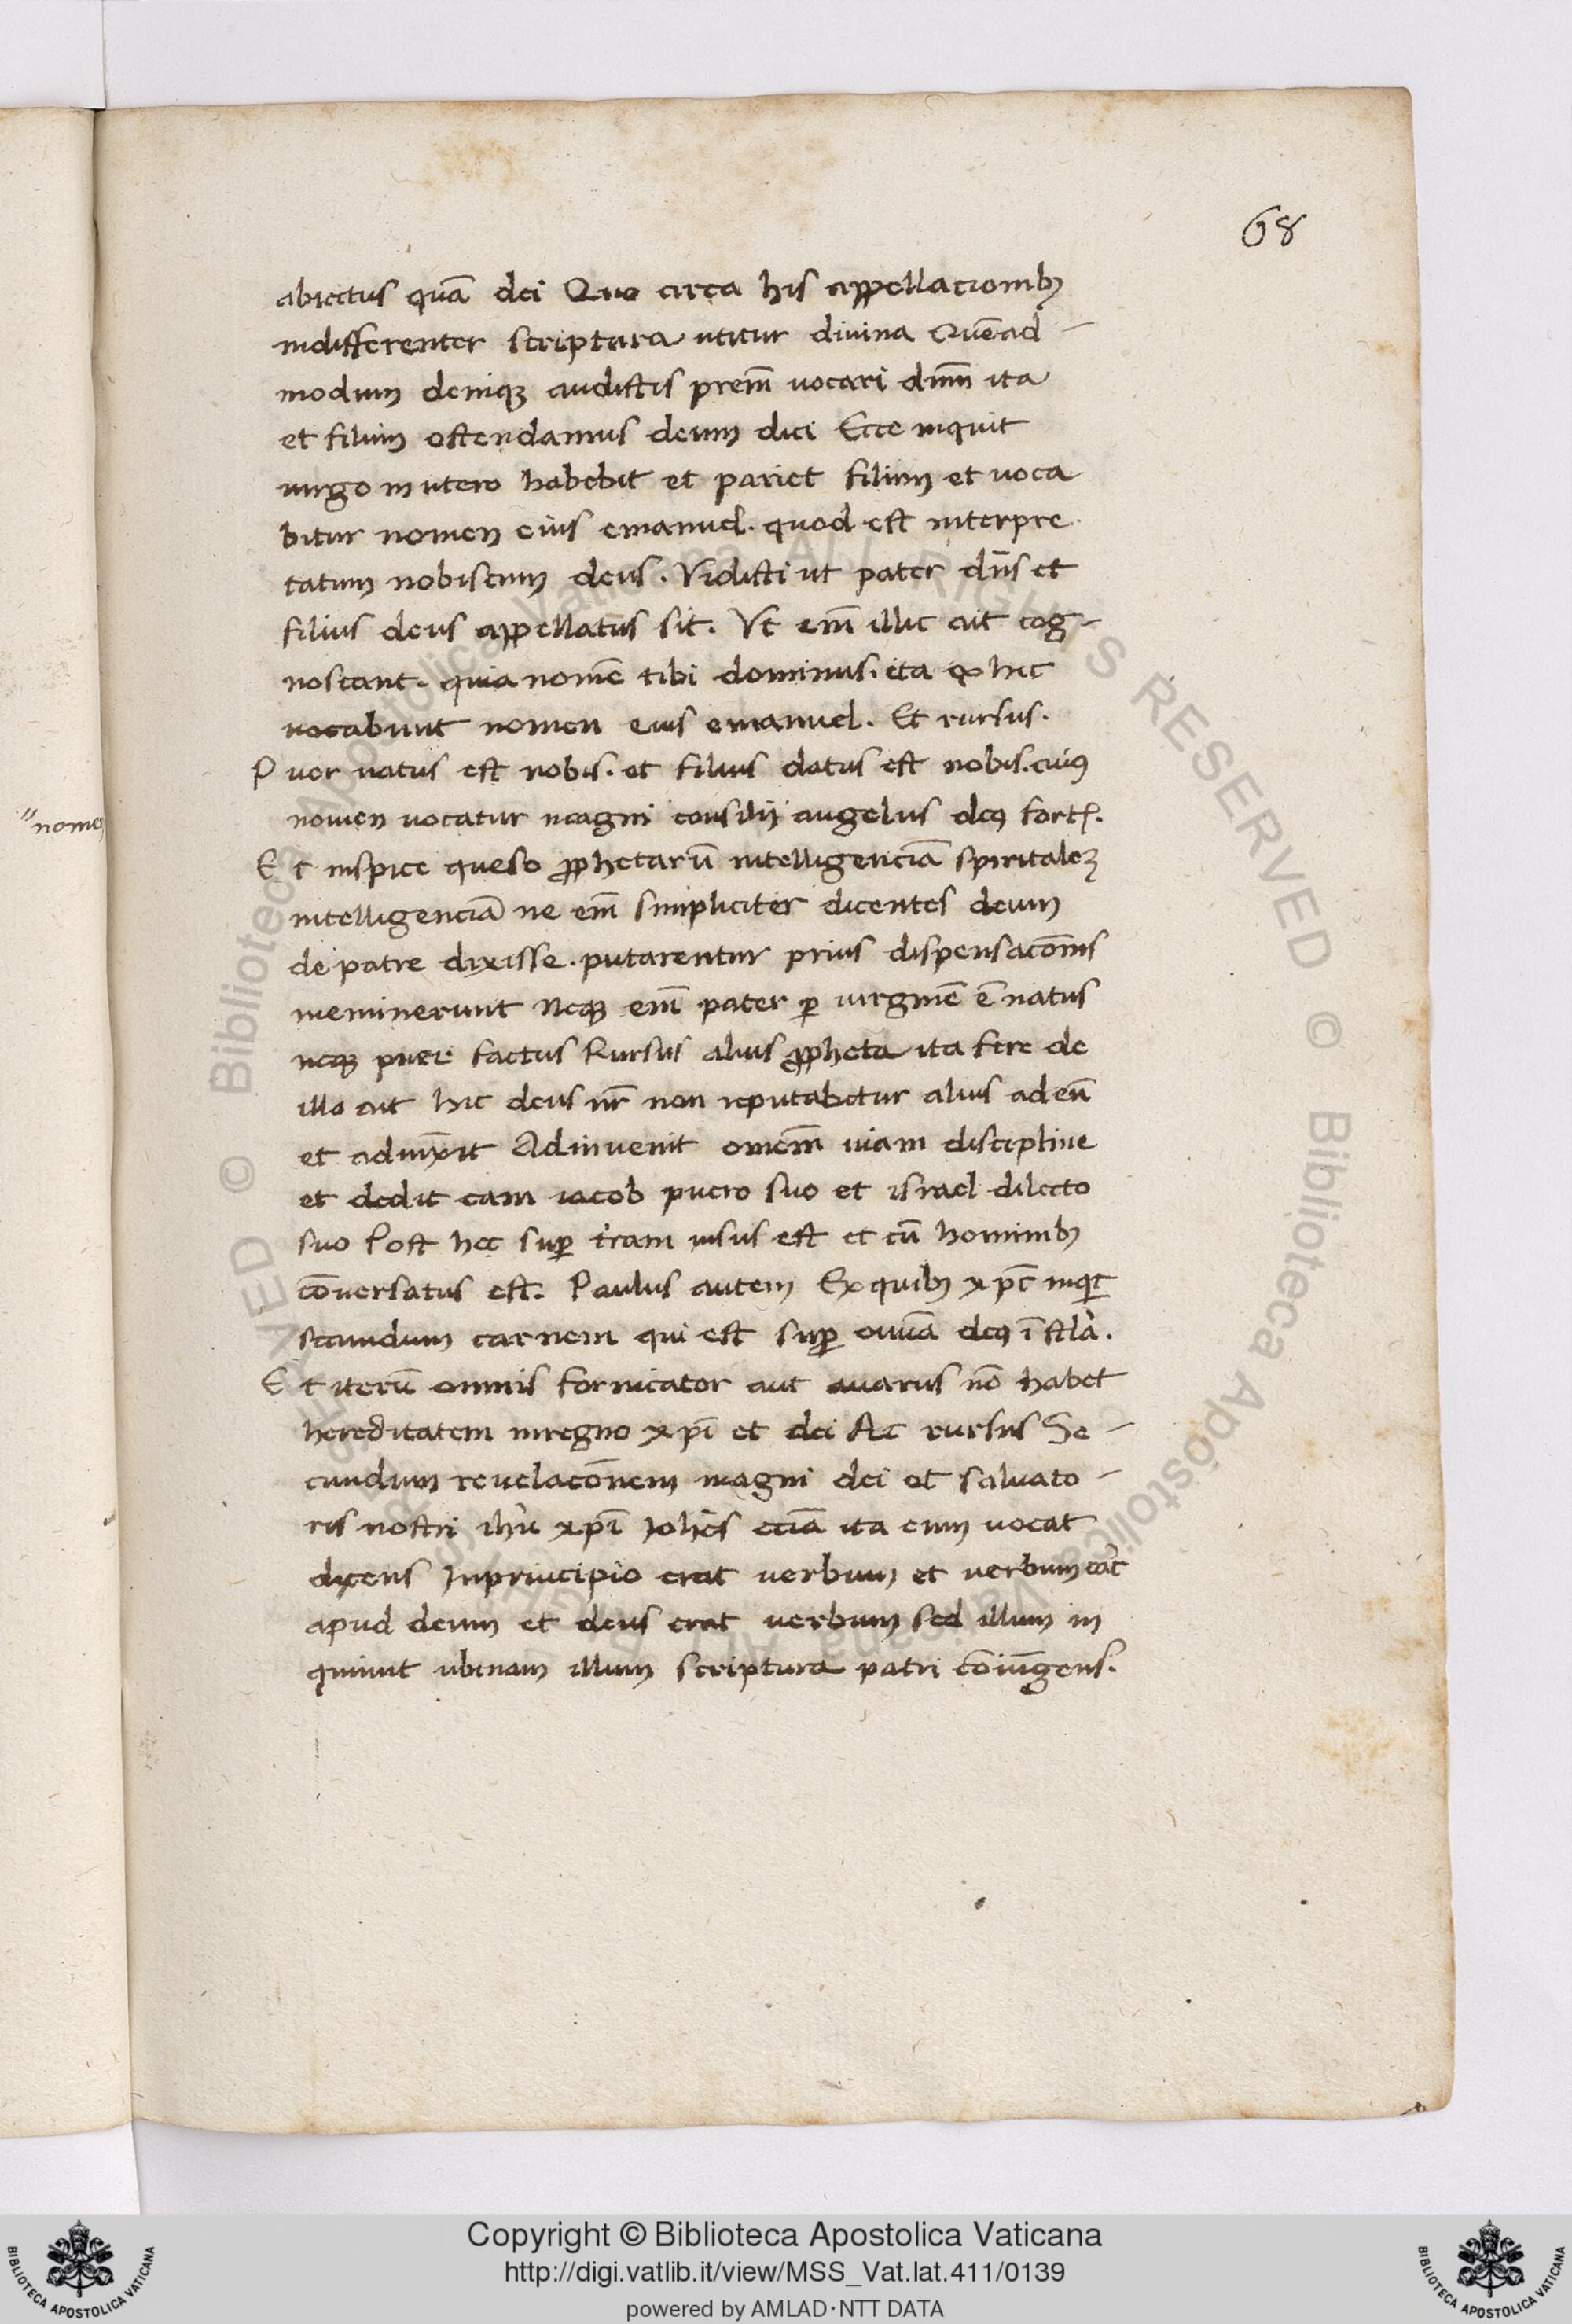 68
abiectus quā dei Quo circa his appellacionibꝫ
indifferenter scriptura utitur divina Quēad-
modum denique audistis prem̄ vocari dnm̄ ita
et filiū ostendamus deum dici Ecce inquit
uirgo in utero habebit et pariet filium et uoca
bitur nomen eius emanuel. quod est interpre
tatum nobiscum deus. Vidisti ut pater dn̄s et
filius deus appellatus sit. Vt em̄ illic ait cog-
noscant. quia nomē tibi dominus. ita & hic
vocabunt nomen eius emanuel. Et rursus.
Puer natus est nobis. et filius datus est nobis. cuiꝰ
nomen vocatur magni consilij angelus deꝰ fort
"nomen
Et inspice queso ꝓphetarū intelligenciā spiritaleꝫ
intelligenciā ne em̄ simpliciter dicentes deum
de patre dixisse. putarentur prius dispensacōnis
meminerunt Neqꝫ em̄ pater ꝑ uirginē ē natus
neqꝫ puer factus Rursus alius ꝓpheta ita fere de
illo ait hic deus nr̄ non reputabitur alius ad eū
et adiunxit Adinvenit omnem̄ uiam discipline
et dedit eam iacob puero suo et israel dilecto
suo Post hec suꝑ tr̄am uisus est et cū hominibꝫ
cōuersatus est. Paulus autem Ex quibꝫ xpc̄ inqͥt
secundum carnem qui est suꝑ om̄ia deꝰ ī scl̄a.
Et iterū omnis fornicator aut auarus nō habet
hereditatem in regno xpī et dei Ac rursus Se-
cundum reuelacōnem magni dei et saluato-
ris nostri ihū xpī Joh̄es eciā ita eum vocat
dicens In principio erat verbum et verbum erāt
apud deum et deus erat verbum sed illum in
quiunt ubinam illum scriptura patri cōiūgens.
Copyright © Biblioteca Apostolica Vaticana
http://digi.vatlib.it/view/MSS_Vat.lat.411/0139
powered by AMLAD·NTT DATA